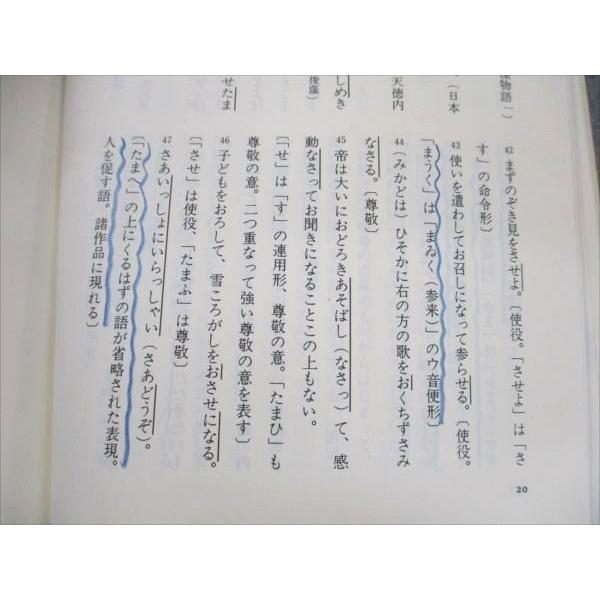 深物語一)
(日本
天徳内
しめき
俊蔭)
せたま
42 まずのぞき見をさせよ。〔使役。「させよ」は「さ
す」の命令形〕
43 使いを遣わしてお召しになって参らせる。〔使役。
「まうく」は「まゐく(参来)」のウ音便形〕
44 (みかどは)ひそかに右の方の歌をおくちずさみ
なさる。〔尊敬〕
45 帝は大いにおどろきあそばし(なさっ)て、感
動なさってお聞きになることこの上もない。
〔「せ」は「す」の連用形、尊敬の意。「たまひ」も
尊敬の意。二つ重なって強い尊敬の意を表す〕
46 子どもをおろして、雪ころがしをおさせになる。
〔「させ」は使役、「たまふ」は尊敬〕
47 さあいっしょにいらっしゃい(さあどうぞ)。
〔「たまへ」の上にくるはずの語が省略された表現。
人を促す語。諸作品に現れる〕
20